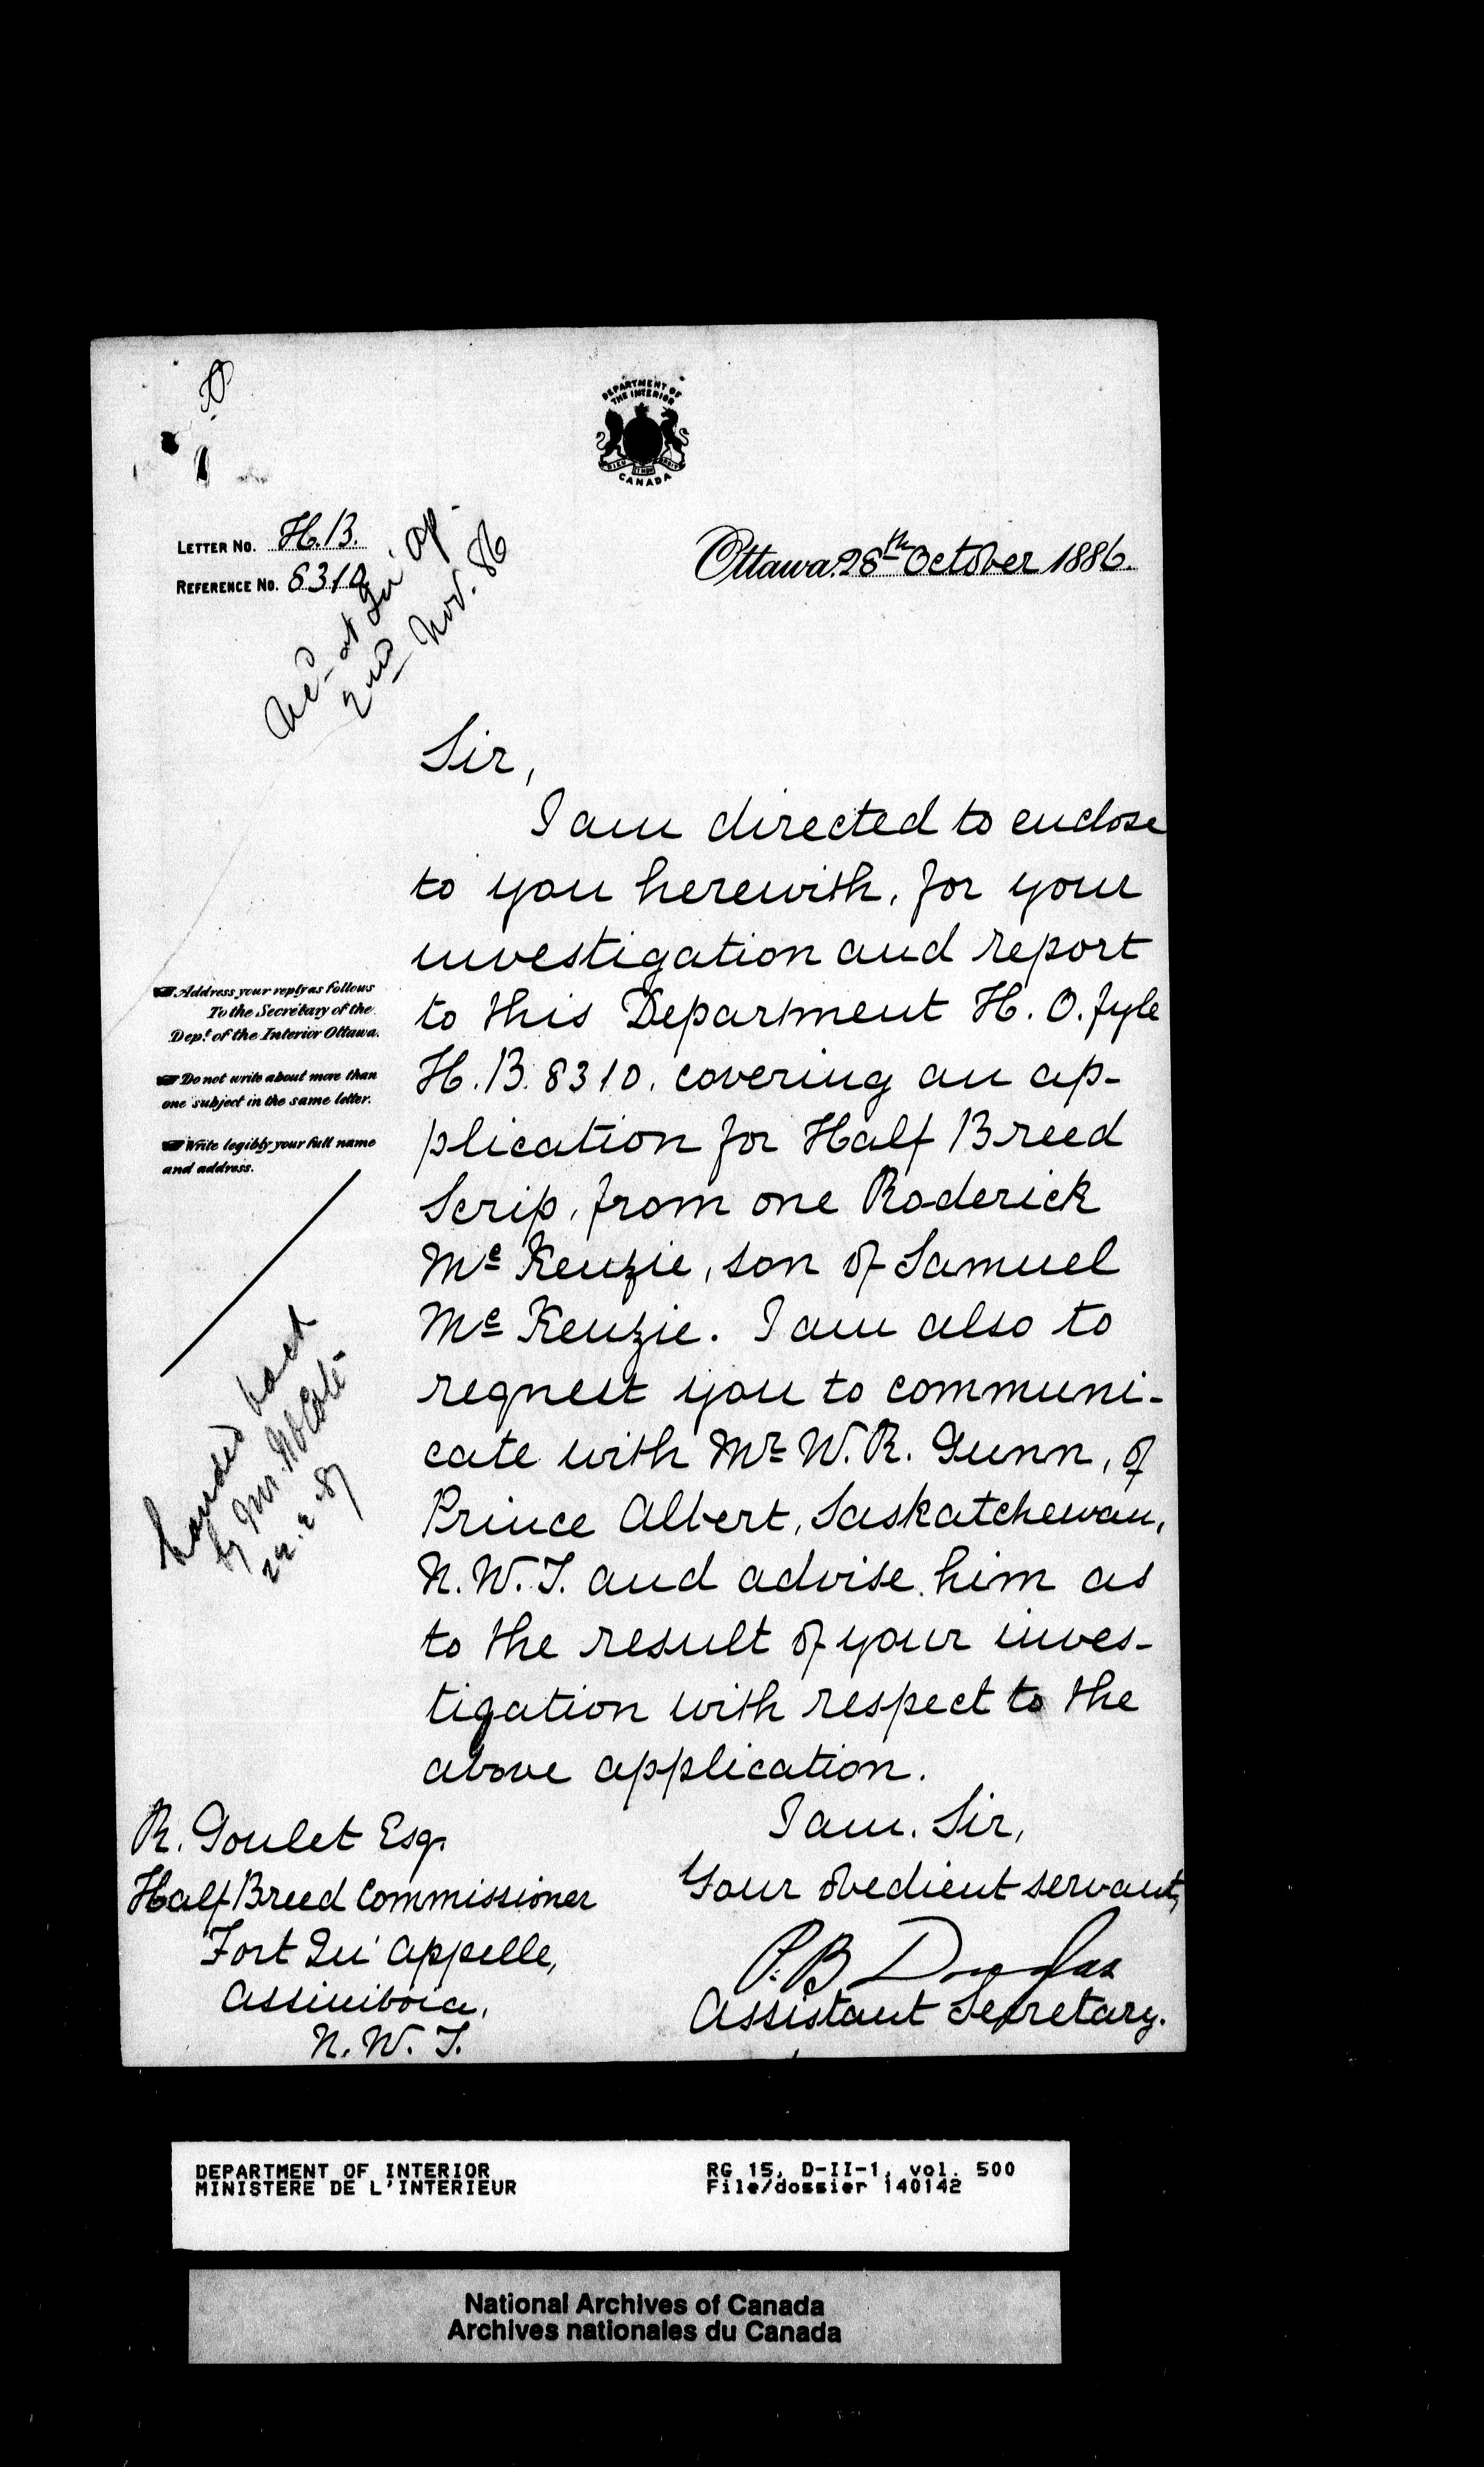 DEPARTMENT OF
THE INTERIOR
CANADA
LETTER NO. H.B.
REFERENCE NO. 8310
Ottawa, 28th October 1886.
Rec'd at Qu'Ap.
2nd Nov. 86
Sir,
I am directed to enclose
to you herewith, for your
investigation and report
to this Department H. O. fyle
H. B. 8310. covering an ap-
plication for Half Breed
Scrip, from one Roderick
Mc Kenzie, son of Samuel
Mc Kenzie. I am also to
request you to communi-
cate with Mr W. R. Gunn, of
Prince Albert, Saskatchewan,
N. W. T. and advise him as
to the result of your inves-
tigation with respect to the
above application.
I am. Sir,
Your obedient servant,
P. B Douglas
Assistant Secretary.
Address your reply as follows
To the Secretary of the
Dept. of the Interior Ottawa.
Do not write about more than
one subject in the same letter.
Write legibly your full name
and address.
handed back
by Mr.
22.2.87
R. Goulet Esq.
Half Breed Commissioner
Fort Qu'Appelle,
Assiniboia,
N. W. T.
DEPARTMENT OF INTERIOR
MINISTERE DE L'INTERIEUR
RG 15, D-II-1, vol. 500
File/dossier 140142
National Archives of Canada
Archives nationales du Canada